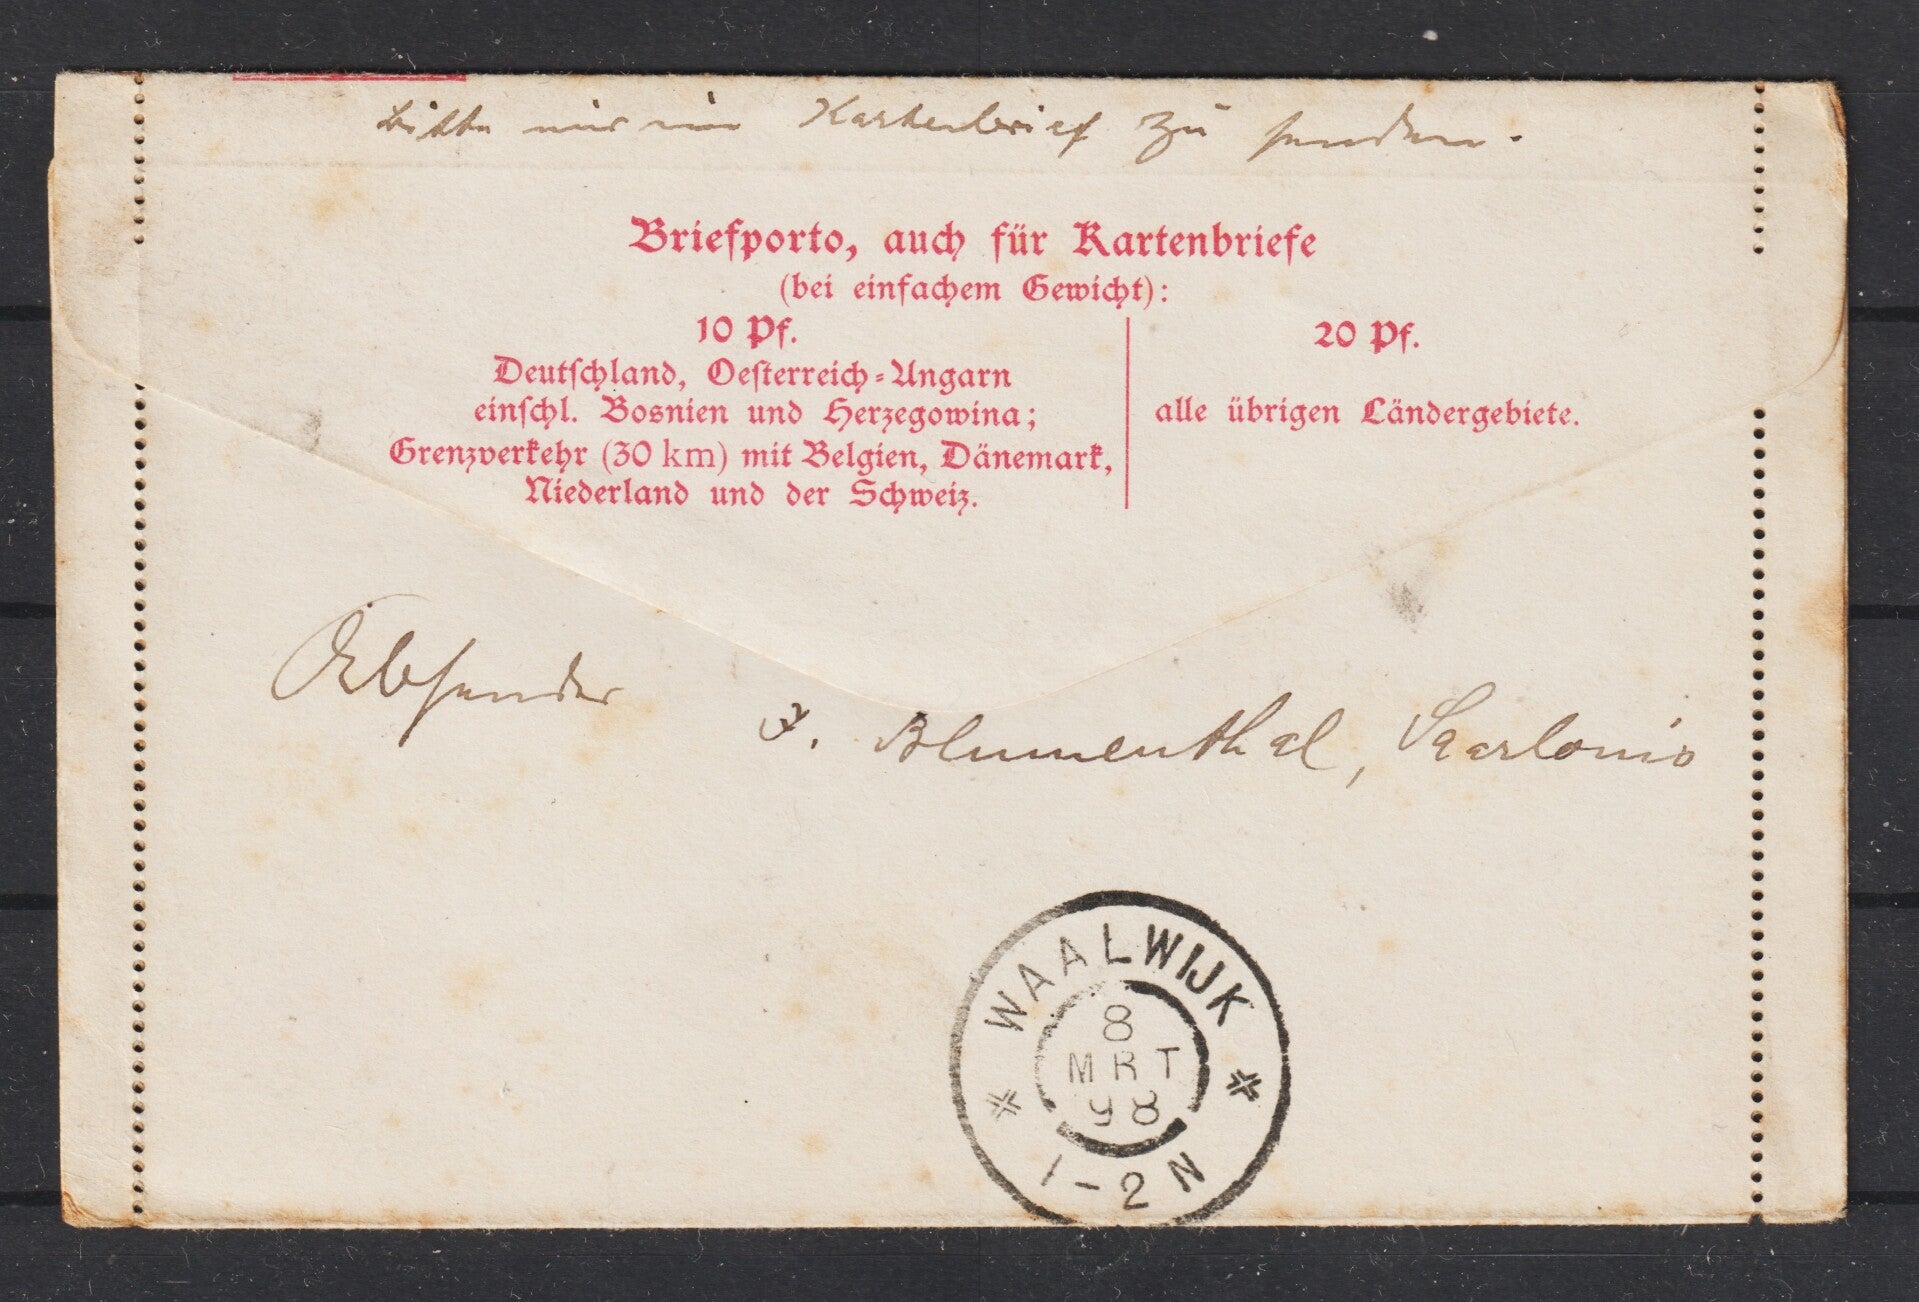 bitte mir ein Kartenbrief zu senden.
Briefporto, auch für Kartenbriefe
(bei einfachem Gewicht):
10 Pf.
Deutschland, Oesterreich-Ungarn
einschl. Bosnien und Herzegowina;
Grenzverkehr (30 km) mit Belgien, Dänemark,
Niederland und der Schweiz.
20 Pf.
alle übrigen Ländergebiete.
Absender
F. Blumenthal, Saarlouis
WAALWIJK
8
MRT
98
1-2 N